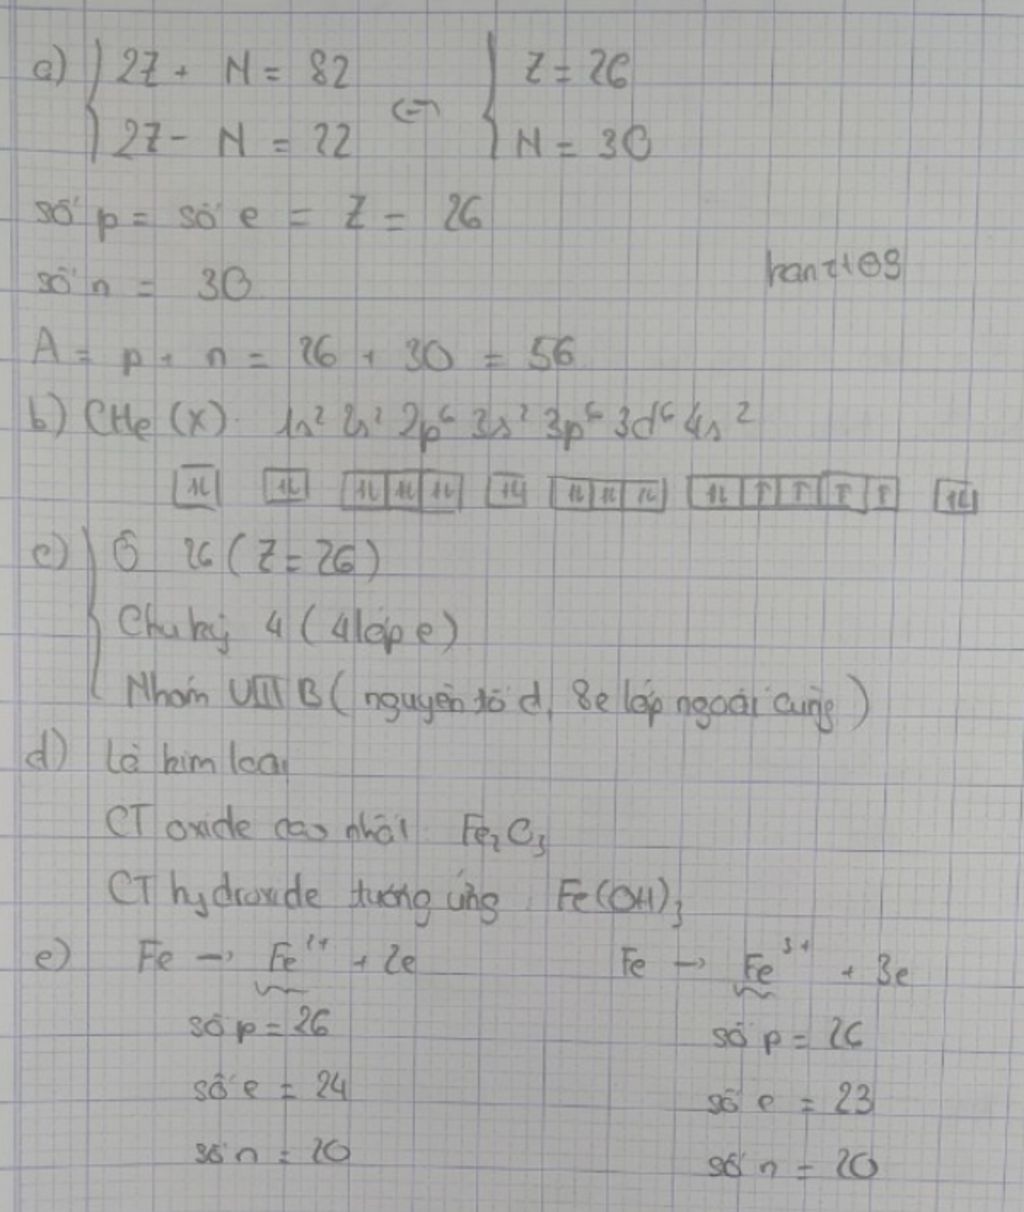 a) { 2Z + N = 82 <=> { Z = 26
2Z - N = 22 N = 30
số p = số e = Z = 26
hanz1109
số n = 30
A = p + n = 26 + 30 = 56
b) CHe (X). 1s² 2s² 2p⁶ 3s² 3p⁶ 3d⁶ 4s²
↑↓ ↑↓ ↑↓ ↑↓ ↑↓ ↑↓ ↑↓ ↑↓ ↑↓ ↑↓ ↑ ↑ ↑ ↑ ↑↓
c) { Ô 26 (Z = 26)
Chu kỳ 4 (4 lớp e)
Nhóm VIII B (nguyên tố d, 8e lớp ngoài cùng)
d) Là kim loại
CT oxide cao nhất Fe₂O₃
CT hydroxide tương ứng Fe(OH)₃
e) Fe → Fe²⁺ + 2e Fe → Fe³⁺ + 3e
số p = 26 số p = 26
số e = 24 số e = 23
số n = 20 số n = 20